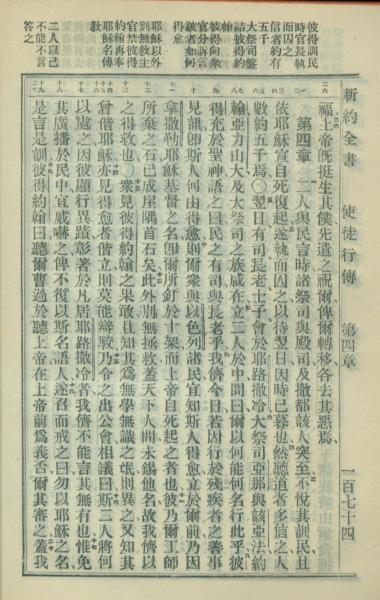 新約全書 使徒行傳 第四章 一百七十四
彼得訓民
時官長執
而囚之
信者約有
五千
大祭司盤
詰彼得約
翰
彼得向衆
官分訴言
跛者如何
得愈
耶穌以外
別無救主
官禁彼得
約翰再奉
耶穌名傳
教
二人以己
不能不言
答之
福上帝旣挺生其僕先遣之祝爾俾爾轉移各去其惡焉
第四章 二人與民言時諸祭司與殿司及撒都該人突至不悅其訓民且
依耶穌宣自死復起遂執而囚之以待翌日因時已暮也然聽道者多信之人
數約五千焉〇翌日有司長老士子會於耶路撒冷大祭司亞那與該亞法約
翰亞力山大及大祭司之族咸在立二人於中問曰爾以何能何名行此乎彼
得充於聖神語之曰民之有司與長老乎我儕今日若因行於殘疾者之善事
見訊卽斯人何由得愈則爾衆與以色列諸民宜知斯人得愈立於爾前乃因
拿撒勒耶穌基督之名卽爾所釘於十架而上帝自死起之者也彼乃爾工師
所棄之石已成屋隅首石矣此外別無拯救蓋天下人間未錫他名致我儕以
之得救也〇衆見彼得約翰之果敢且知其爲無學無識之氓則異之又知其
曾偕耶穌亦見得愈者偕立則莫能辯駁乃令之出公會相議曰斯二人將何
以處之因彼顯行異蹟彰著於凡居耶路撒冷者我儕不能言其無有也惟免
其廣播於民中宜威嚇之俾不復以斯名語人遂召而戒之曰勿以耶穌之名
是言是訓彼得約翰曰聽爾曹過於聽上帝在上帝前爲義否爾其審之蓋我